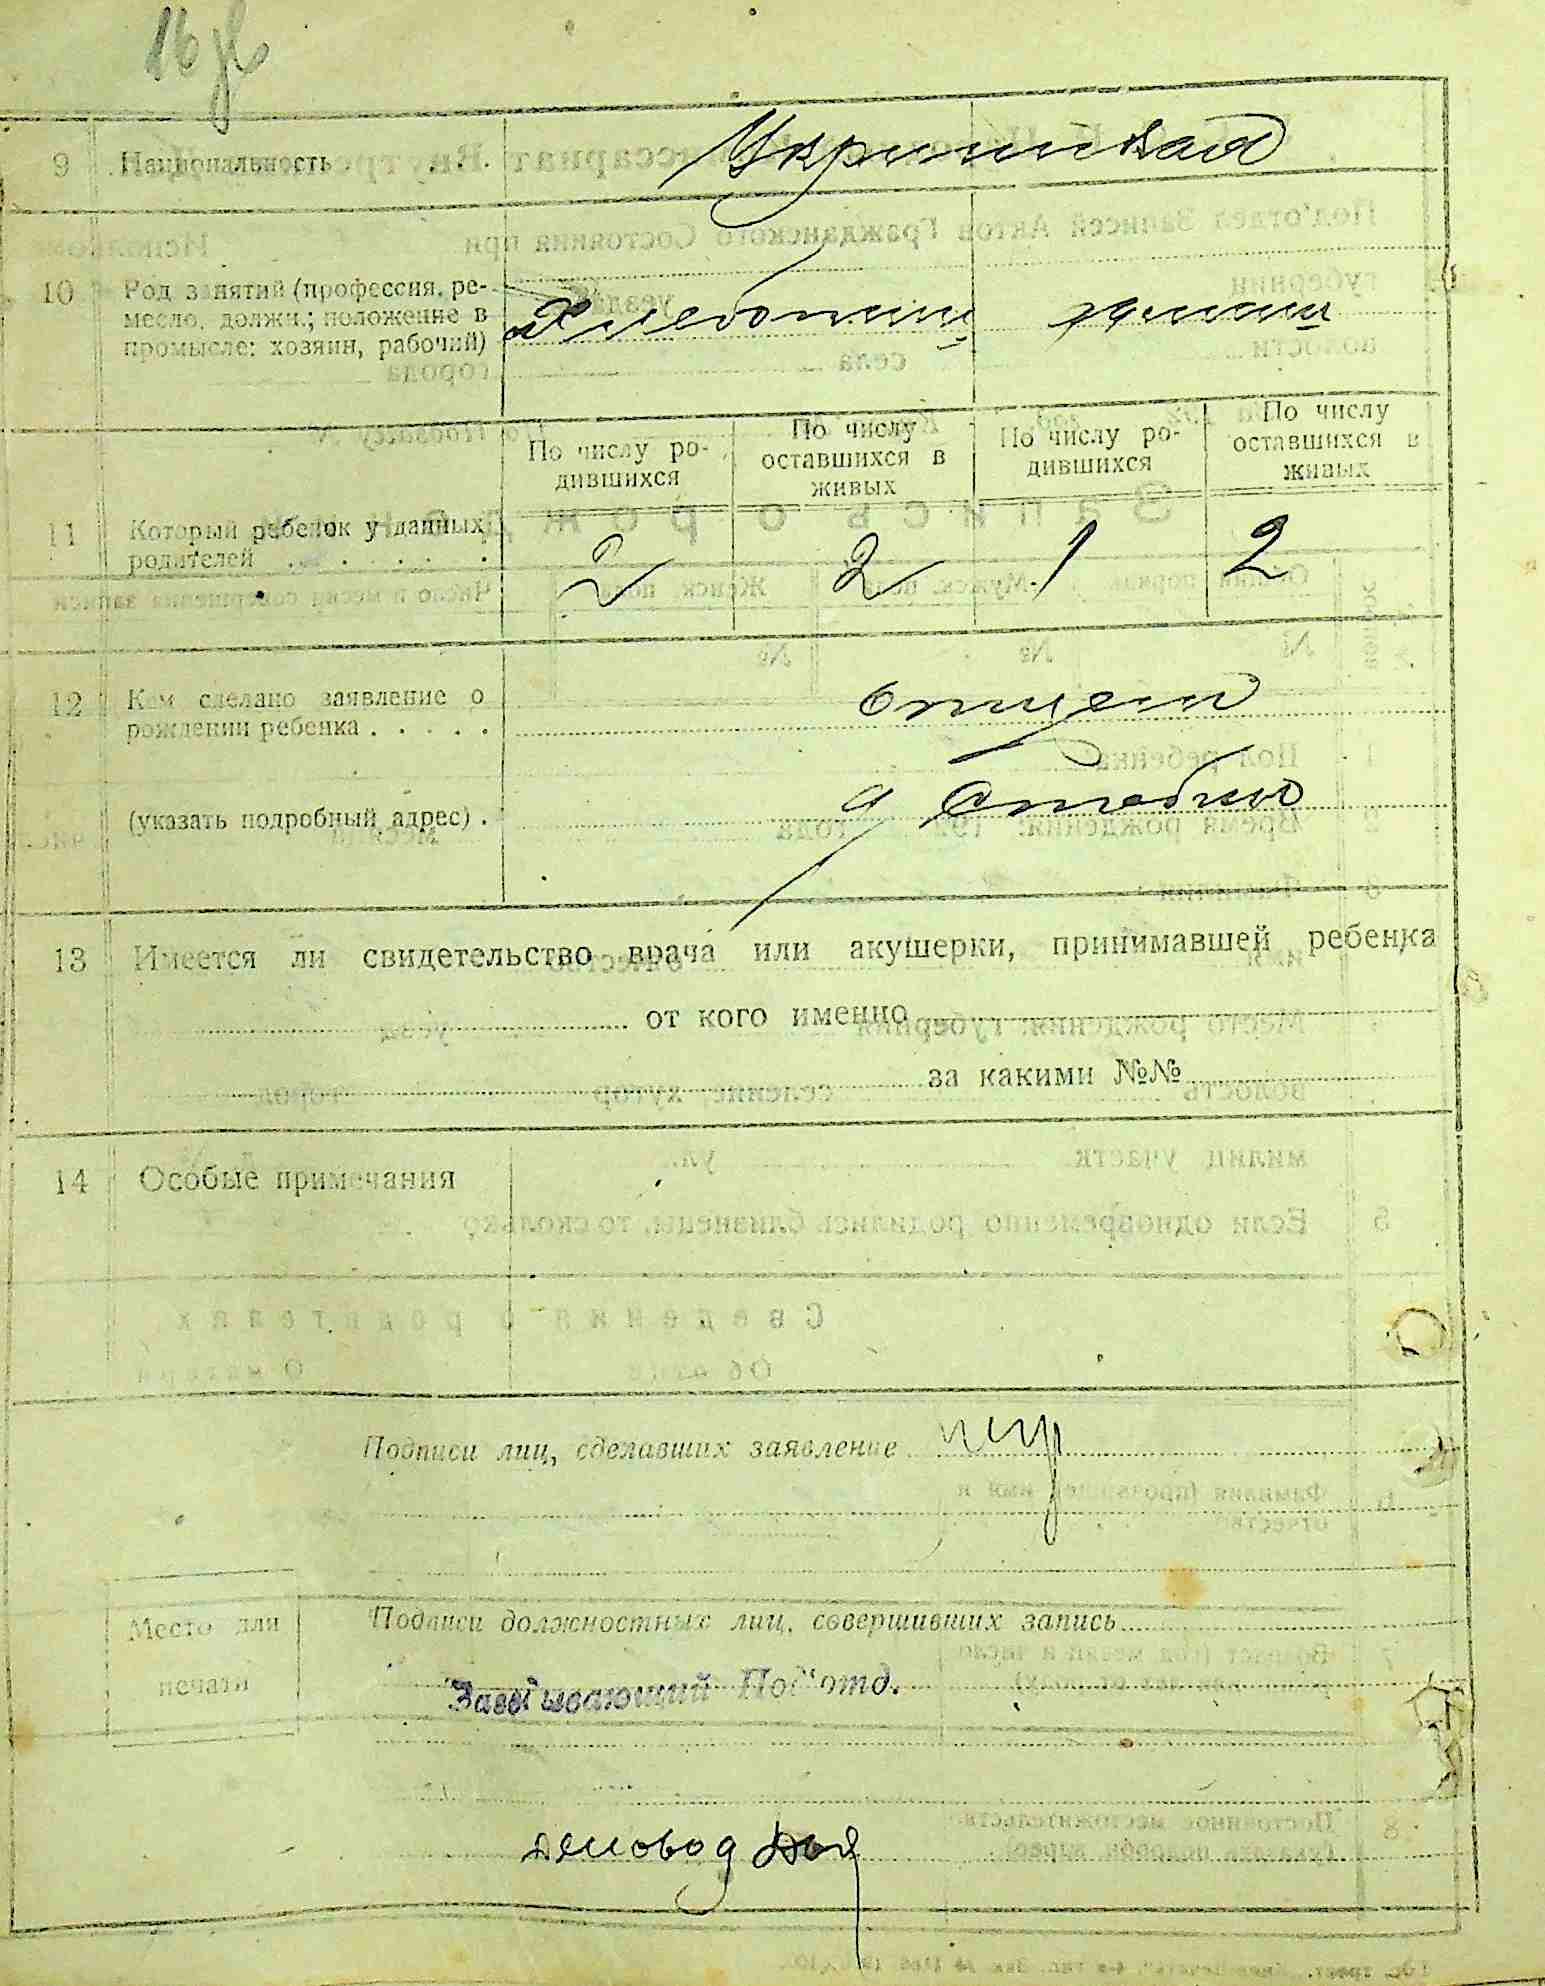 16
9 Национальность
Украинская
10 Род занятий (профессия, ре-
месло, должн.; положение в
промысле: хозяин, рабочий)
Хлебопашц
По числу ро-
дившихся
По числу
оставшихся в
живых
По числу ро-
дившихся
По числу
оставшихся в
живых
11 Который ребенок у данных
родителей . . . . .
2 2 1 2
12 Кем сделано заявление о
рождении ребенка . . . . .
отцем
(указать подробный адрес) .
13 Имеется ли свидетельство врача или акушерки, принимавшей ребенка
от кого именно
за какими №№
14 Особые примечания
Подписи лиц, сделавших заявление
Место для
печати
Подписи должностных лиц, совершивших запись
Заведывающий Под'отд.
деловод